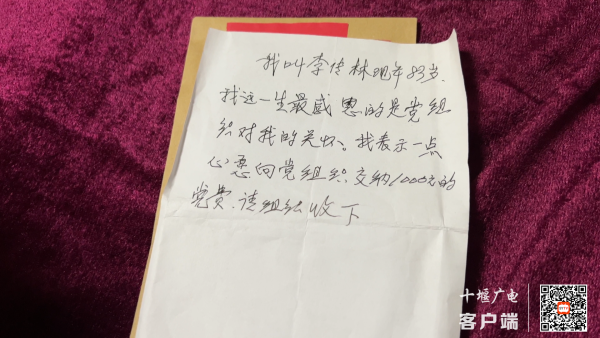 我叫李传林现年83岁.
我这一生最感恩的是党组
织对我的关怀。我表示一点
心意向党组织交纳1000元的
党费.请组织收下
十堰广电
客户端